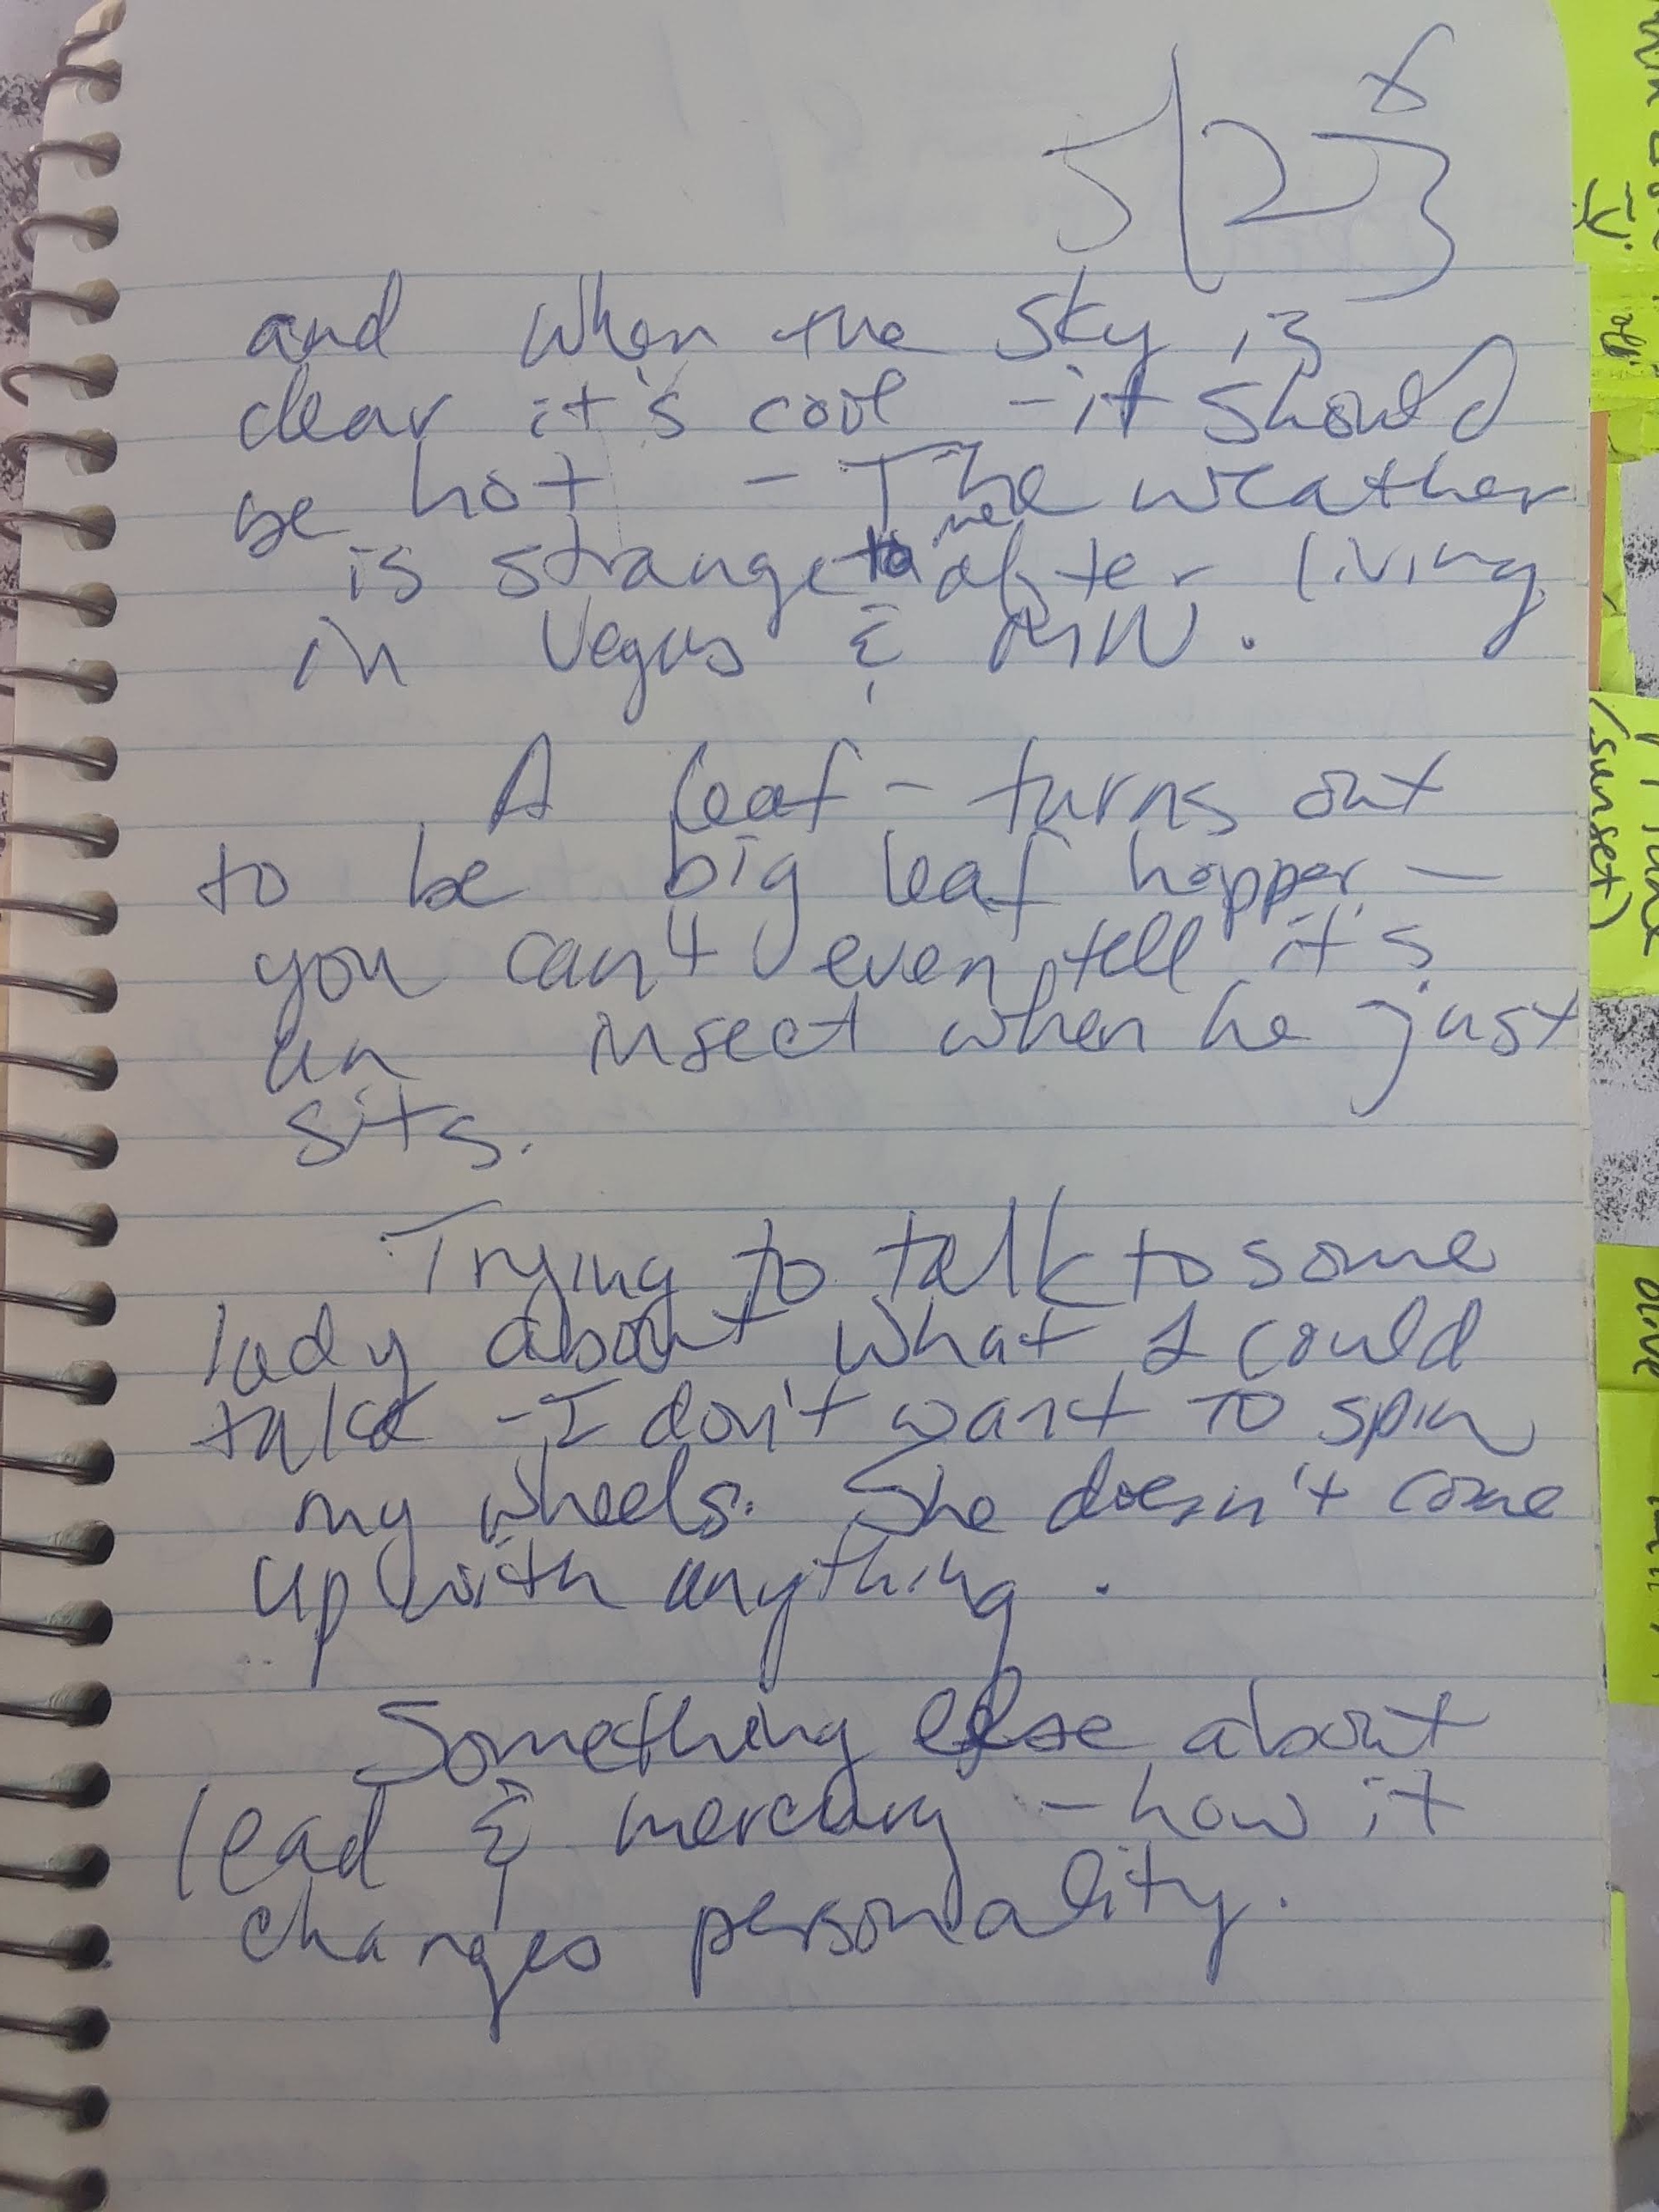 8
5/23
and when the sky is
clear it's cool - it should
be hot - The weather
is strange to me after living
in Vegas & MW.
A leaf - turns out
to be big leaf hopper -
you can't even tell it's
an insect when he just
sits.
Trying to talk to some
lady about what I could
take - I don't want to spin
my wheels. She doesn't come
up with anything.
Something else about
lead & mercury - how it
changes personality.
(sunset)
olive